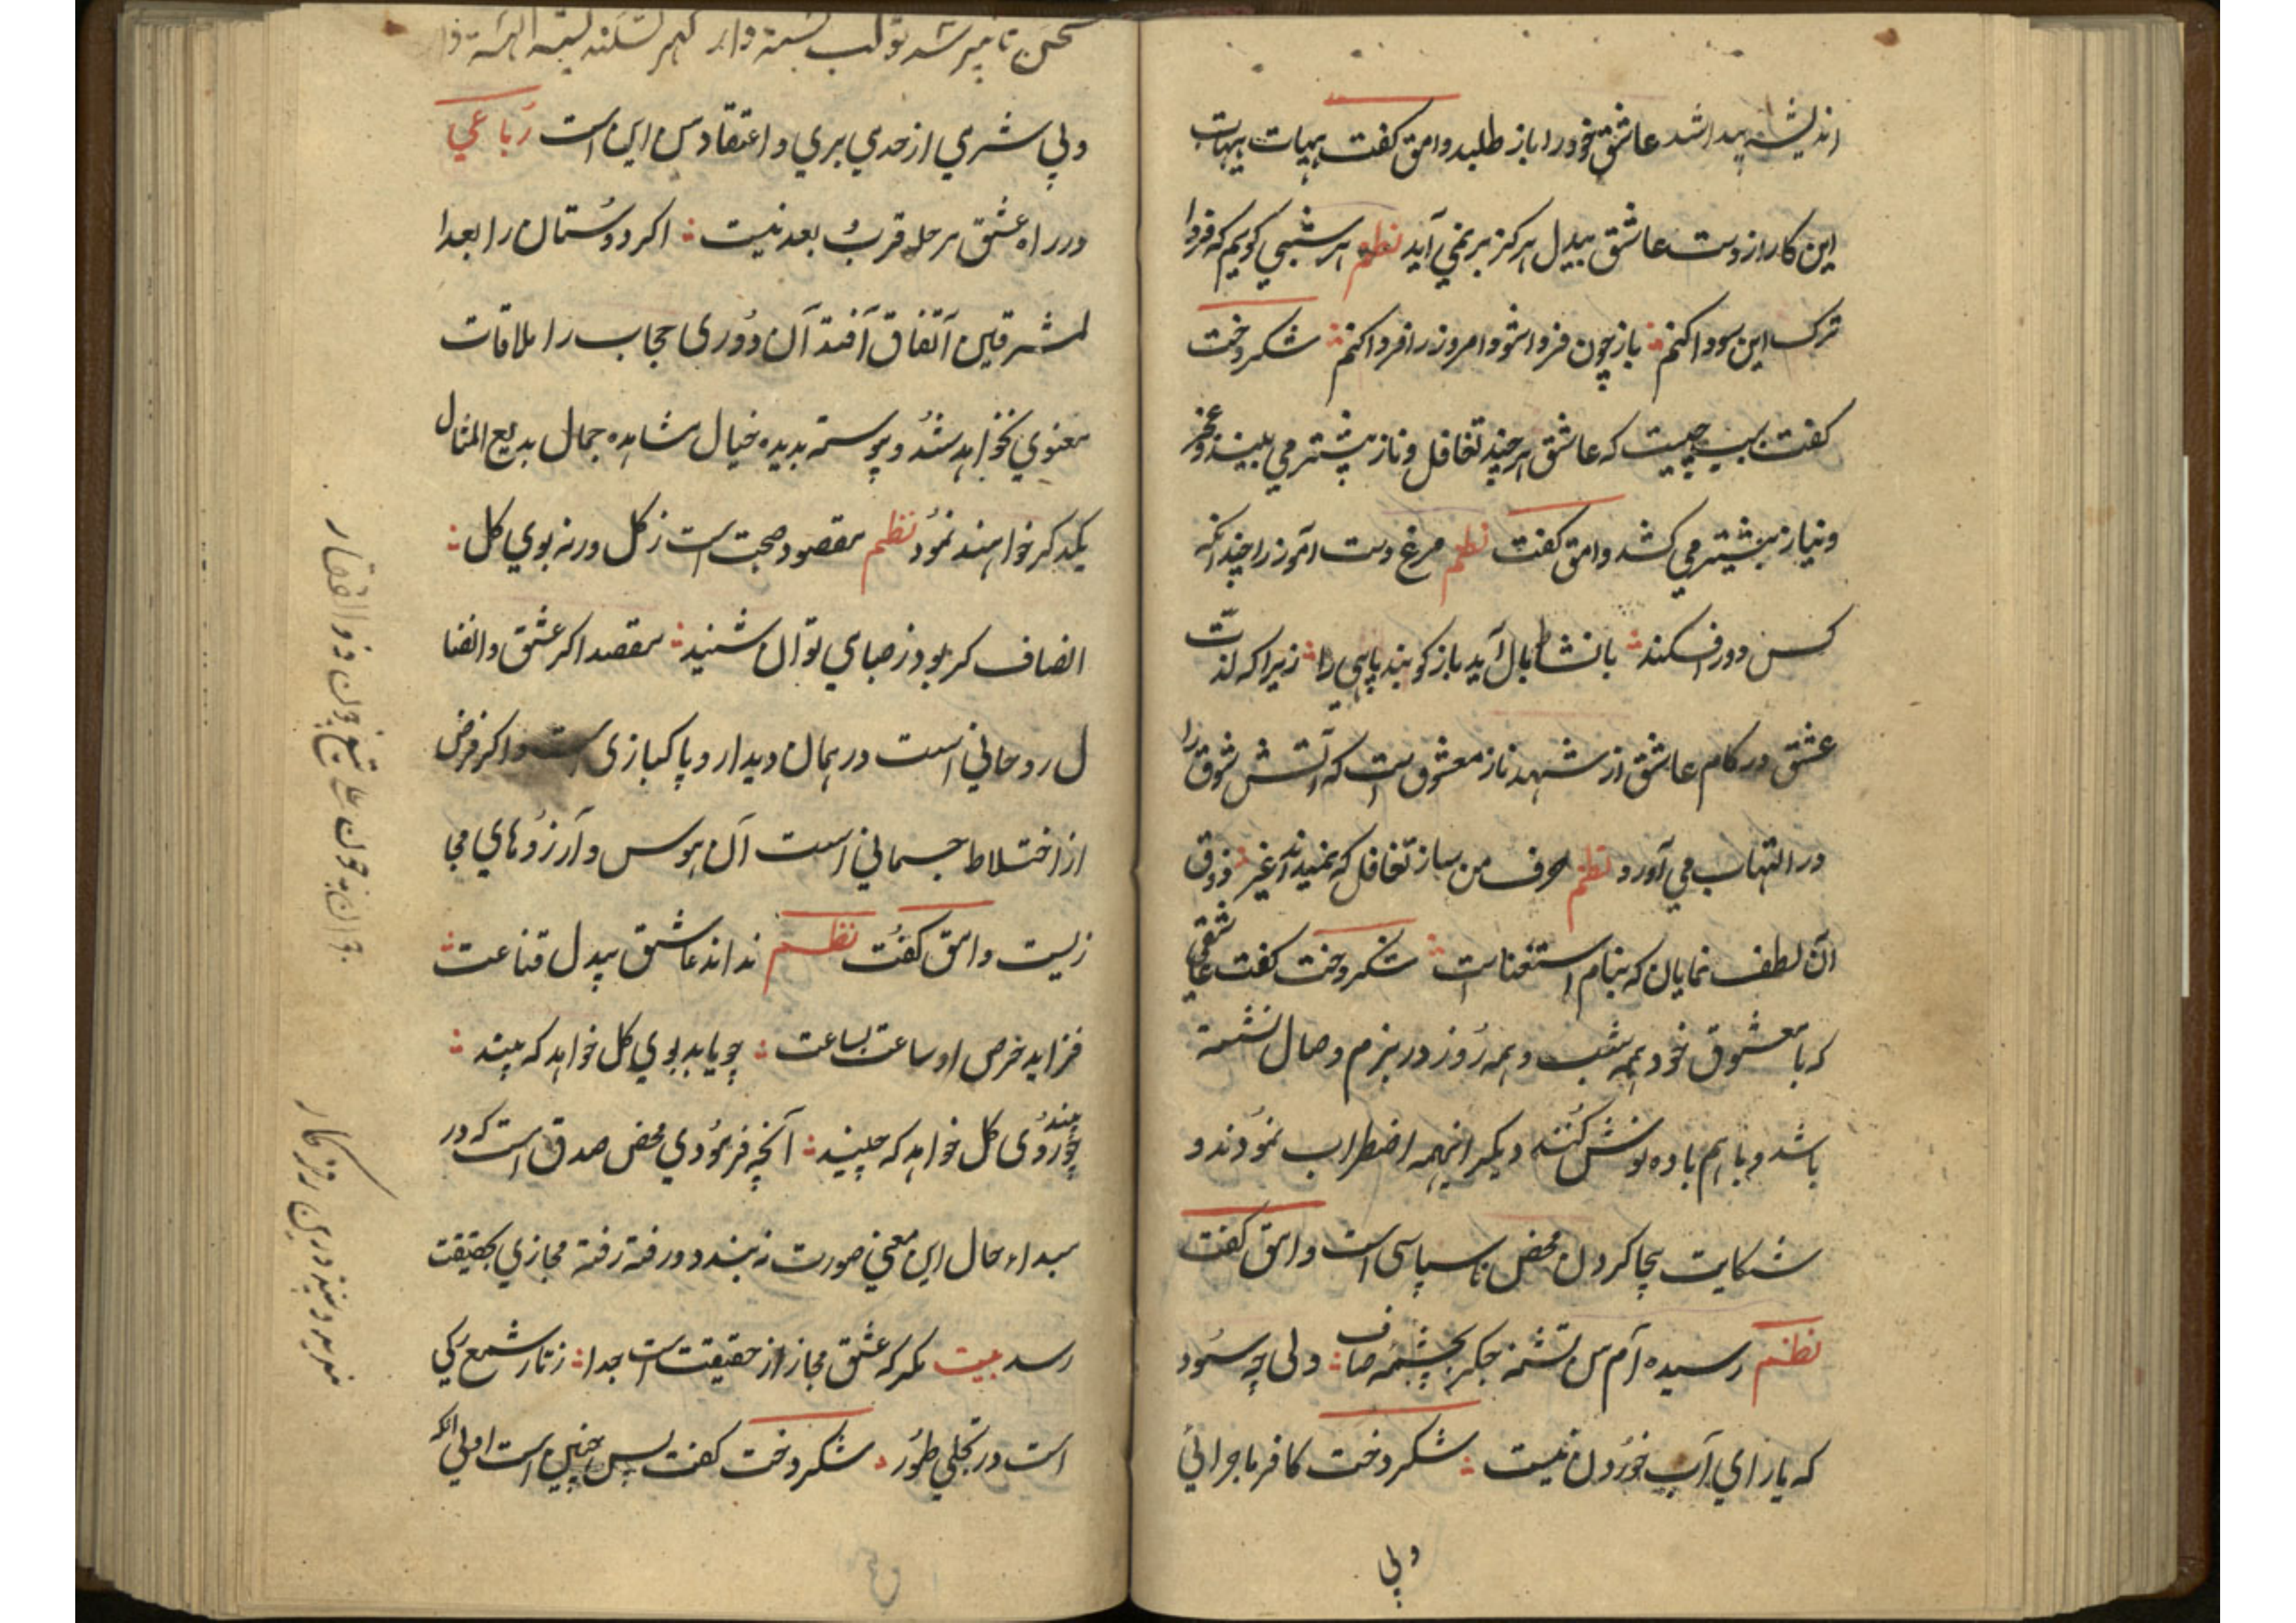 اندیشه پیدا شد عاشق خود را باز طلبد وامق کفت هیهات هیهات
این کار از دست عاشق بیدل هرکز بر نمی آید نظم هر شبی کویم که فردا
ترک این سودا کنم باز چون فردا شود امروز را فردا کنم شکر دخت
کفت سبب چیست که عاشق هر چند تغافل و ناز بیشتر می بیند عجز
و نیاز بیشتر می کشد وامق کفت نظم مرغ دست آموز را چندانکه
کس دور افکند با نشاط بال آید باز کوبند پای را زیرا که لذت
عشق در کام عاشق از شهد ناز معشوق است که آتش شوق را
در التهاب می آورد نظم حرف من ساز تغافل که نمیداند غیر ذوق
آن لطف نمایان که بنام استغناست شکر دخت کفت عاشقی
که با معشوق خود همه شب و همه روز در بزم وصال نشسته
باشد و باهم باده نوش کنند دیکر اینهمه اضطراب نمودند و
شکایت بیجا کردن محض ناسپاسی است وامق کفت
نظم رسیده ام من تشنه جکر بچشمه صاف ولی چه سود
که یارای آب خوردن نیست شکر دخت کافر ماجرائی
ولی
ولی شری از خدی بری و اعتقاد من این است رباعی
در راه عشق مرحله قرب و بعد نیست اکر دوستان را بعد ا
لمشرقین اتفاق افتد آن دوری حجاب را ملاقات
معنوی نخواهد شد و پیوسته بدیده خیال مشاهده جمال بدیع المثال
یکدکر خواهند نمود نظم مقصود صحبت است ز کل ورنه بوی کل
انصاف کر بود ز صبا می توان شنید مقصد اکر عشق و اتصا
ل روحانی است در همان دیدار و پاکبازی است و اکر غرض
از اختلاط جسمانی است آن هوس و آرزوهای مجا
زیست وامق کفت نظم نداند عاشق بیدل قناعت
فزاید حرص او ساعت بساعت چو یابد بوی کل خواهد که بیند
چو بیند روی کل خواهد که چیند آنچه فرمودی محض صدق است که در
مبداء حال این معنی صورت نبندد و رفته رفته مجازی بحقیقت
رسد بیت مکو که عشق مجاز از حقیقت است جدا ز نار شمع یکی
است در تجلی طور شکر دخت کفت پس چنین است اولی آنکه